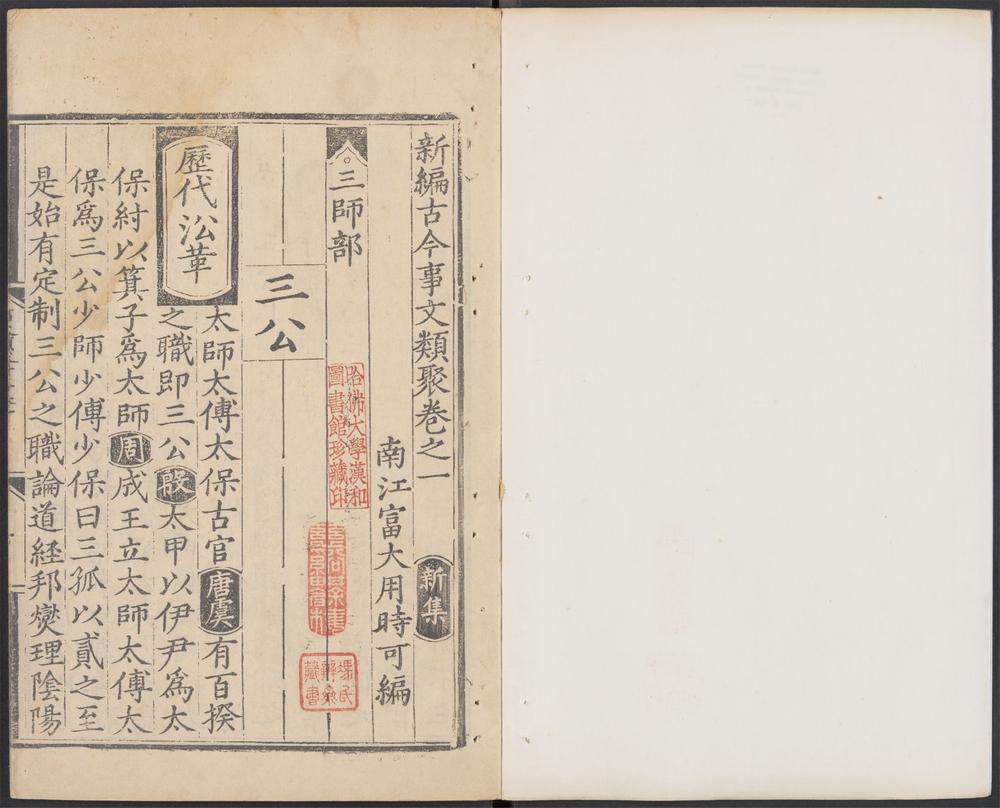 新編古今事文類聚卷之一 新集
南江富大用時可編
哈佛大學漢和
圖書館珍藏印
三師部
三公
歷代㳂革
太師太傅太保古官唐虞有百揆
之職即三公殷太甲以伊尹爲太
保紂以箕子爲太師周成王立太師太傅太
保爲三公少師少傅少保曰三孤以貳之至
是始有定制三公之職論道経邦爕理陰陽